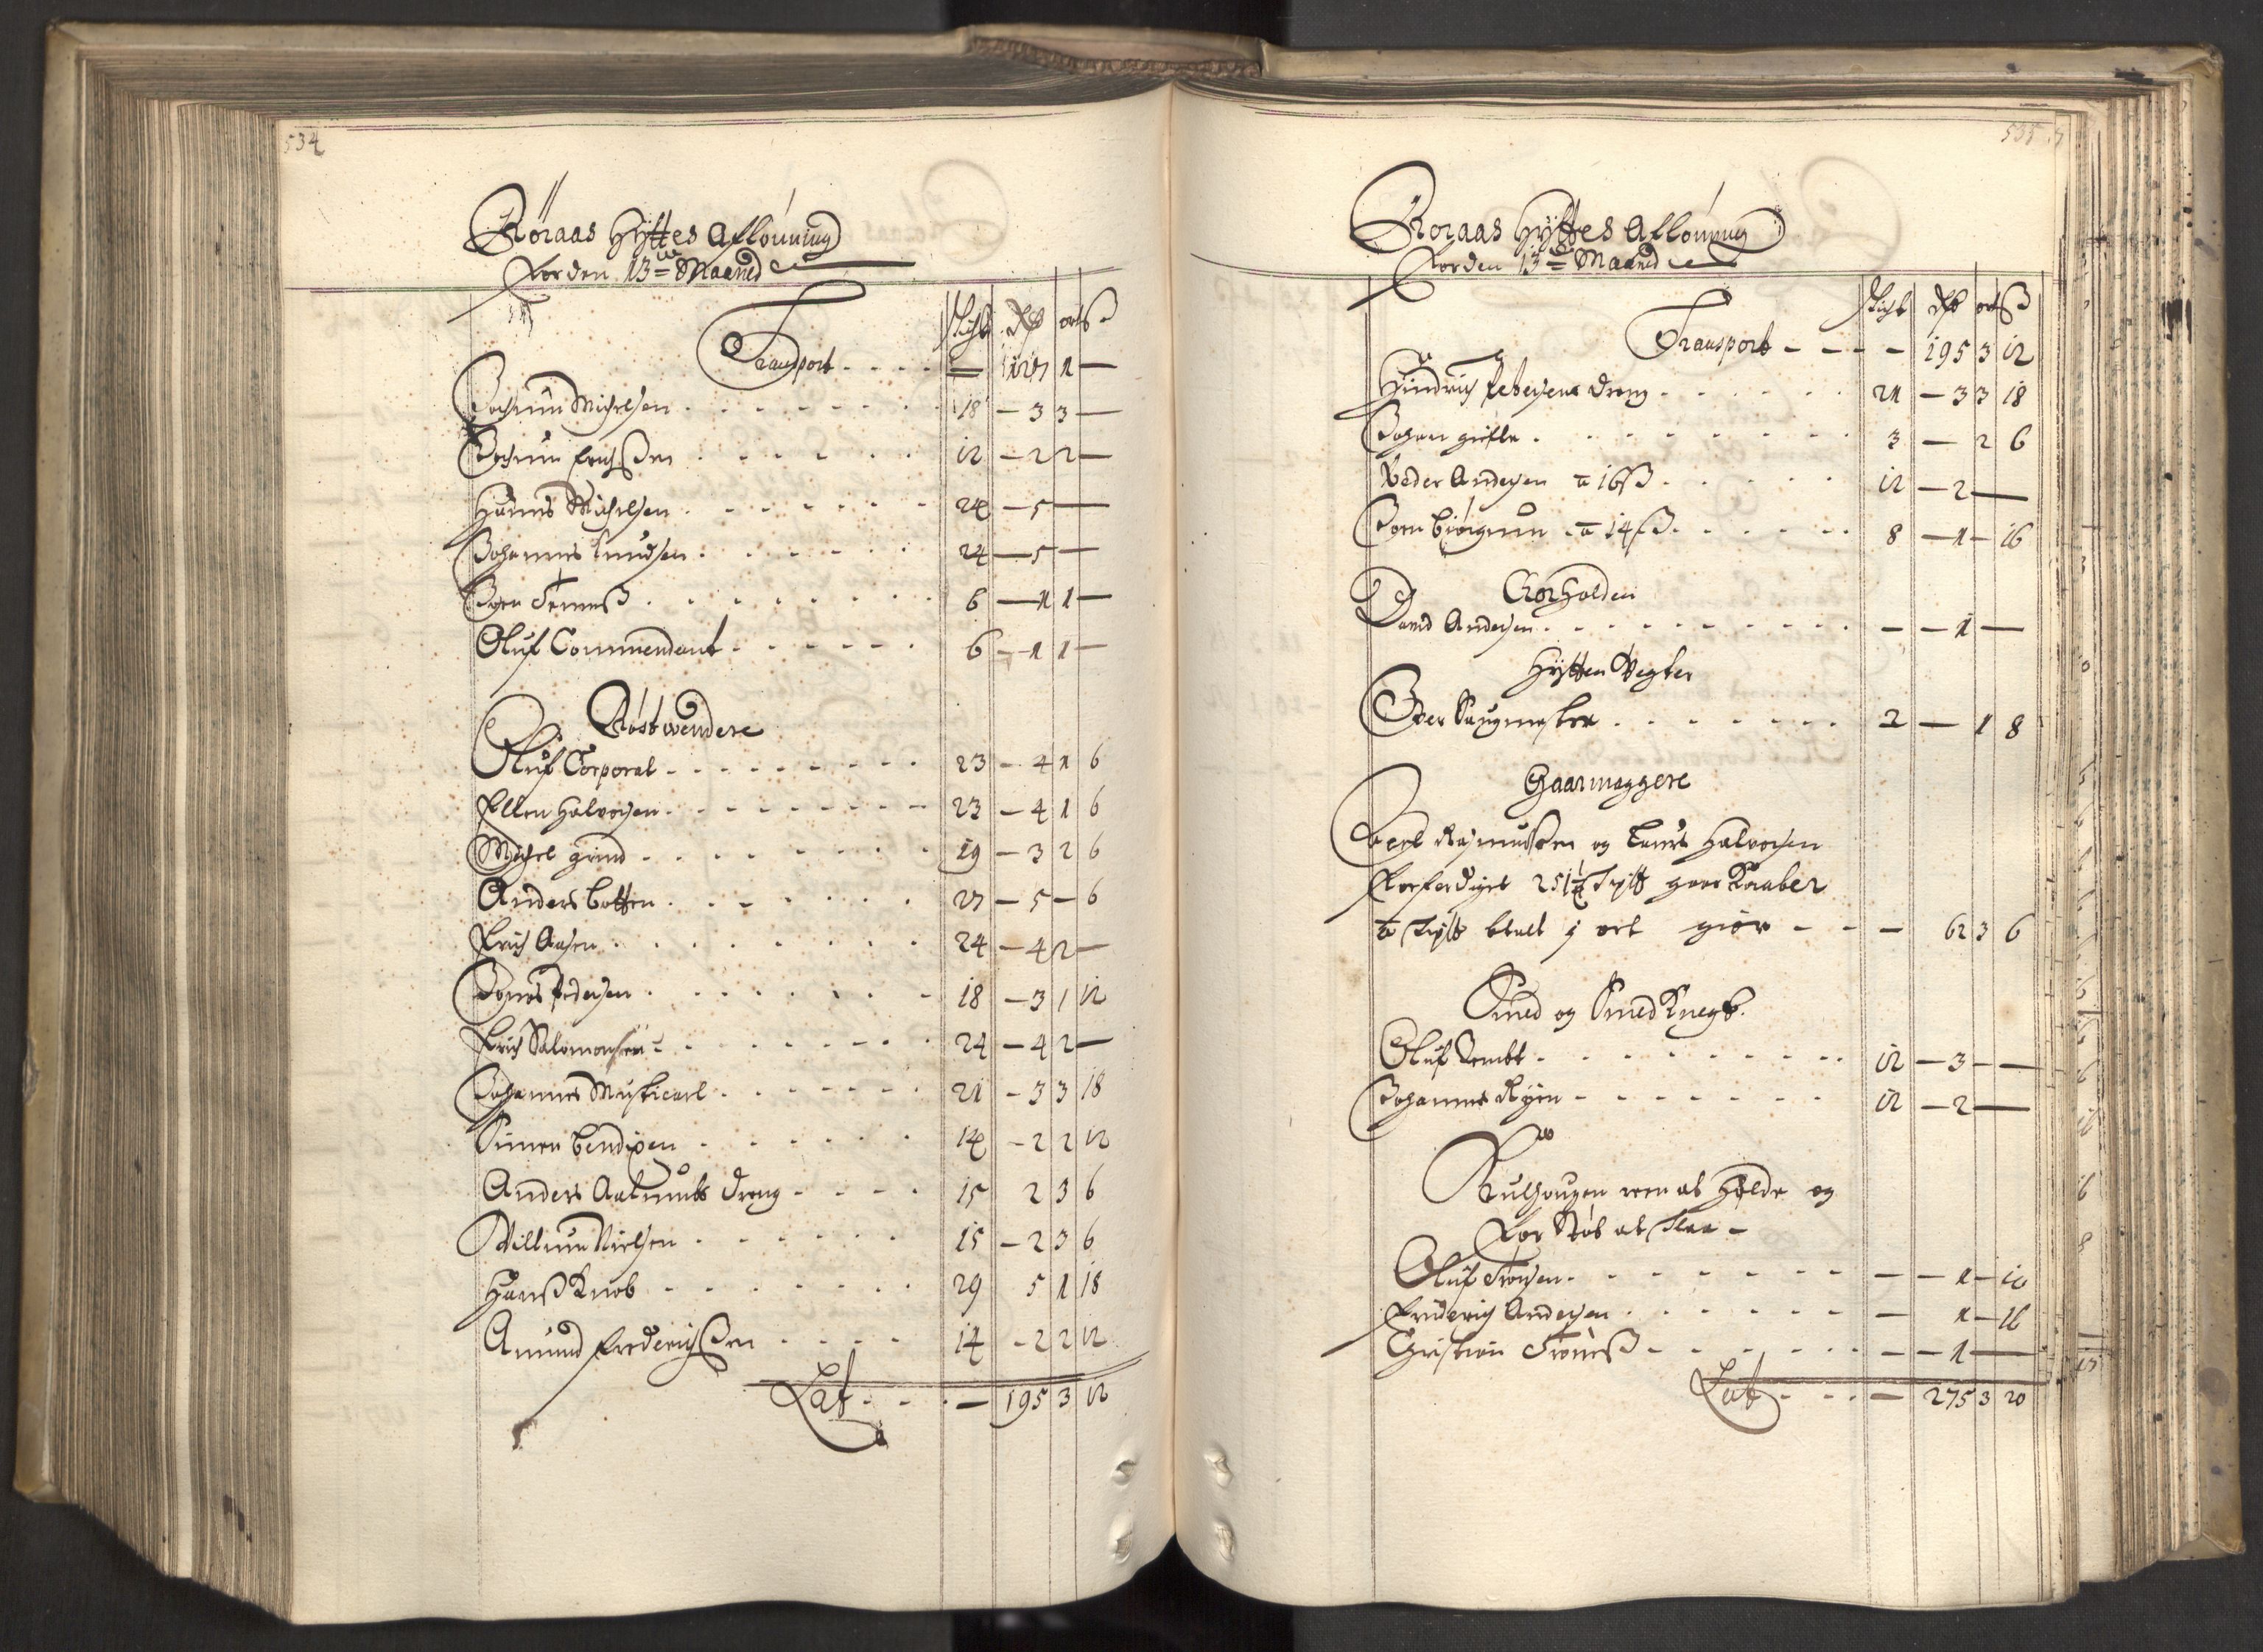 534
Røraas Hÿttes Aflønning
For den 13de Maaned
Skigt Rdr ort ß
Transport - - - - — 127 1 —
Jochum Michelsen - - - 18 — 3 3 —
Jochum Erichßen - - - 12 — 2 2 —
Hanns Michelsen - - - 24 — 5 —
Johannes Knudsen - - - 24 — 5 —
Joen Trønneß - - - 6 — 1 1 —
Oluf Commendant - - - 6 — 1 1 —
Røstwendere
Oluf Corporal - - - 23 — 4 1 6
Ellen Halvorsen - - - 23 — 4 1 6
Michel grind - - - 19 — 3 2 6
Anders botten - - - 27 — 5 — 6
Erich Aasen - - - 24 — 4 2 —
Jonas Pedersen - - - 18 — 3 1 12
Erich Salomonsen - - - 24 — 4 2 —
Johannes Musticarl - - - 21 — 3 3 18
Simen bendixen - - - 14 — 2 2 12
Anders Aalmuts Dreng - - - 15 2 3 6
Willum Nielsen - - - 15 — 2 3 6
Hanß Knob - - - 29 5 1 18
Amund Frederichßen - - - 14 — 2 2 12
Lat - - - — 195 3 12
535
Røraas Hÿttes Aflønning
For den 13de Maaned
Skigt Rdr ort ß
Transport - - - — 195 3 12
Hindrich Pedersens Dreng - - - 21 — 3 3 18
Johan gifle - - - 3 — 2 6
Peder Andersen a 16 ß - - - 12 — 2 —
Joen biörgmun a 14 ß - - - 8 — 1 — 16
Chorholden
David Andersen - - - — — 1 —
Hÿtten Vegter
Iver Saugmester - - - 2 — 1 8
Gaarmaggere
Berl Rasmussen og Lauris Halvorsen
Forferdiget 251½ Sÿtt gaar Kaaber
a Sÿtt betalt j ort giør - - - 62 3 6
Smed og Smed Knegt.
Oluf Tembt - - - 12 — 3 — —
Johannes Ryen - - - 12 — 2 —
Kulhougen reen at Holde og
For Støb at Slaa —
Oluf Torsen - - - — — 1 — 16
Friderich Andersen - - - — 1 — 16
Christian Trønneß - - - — — 1 —
Lat - - - — 275 3 20